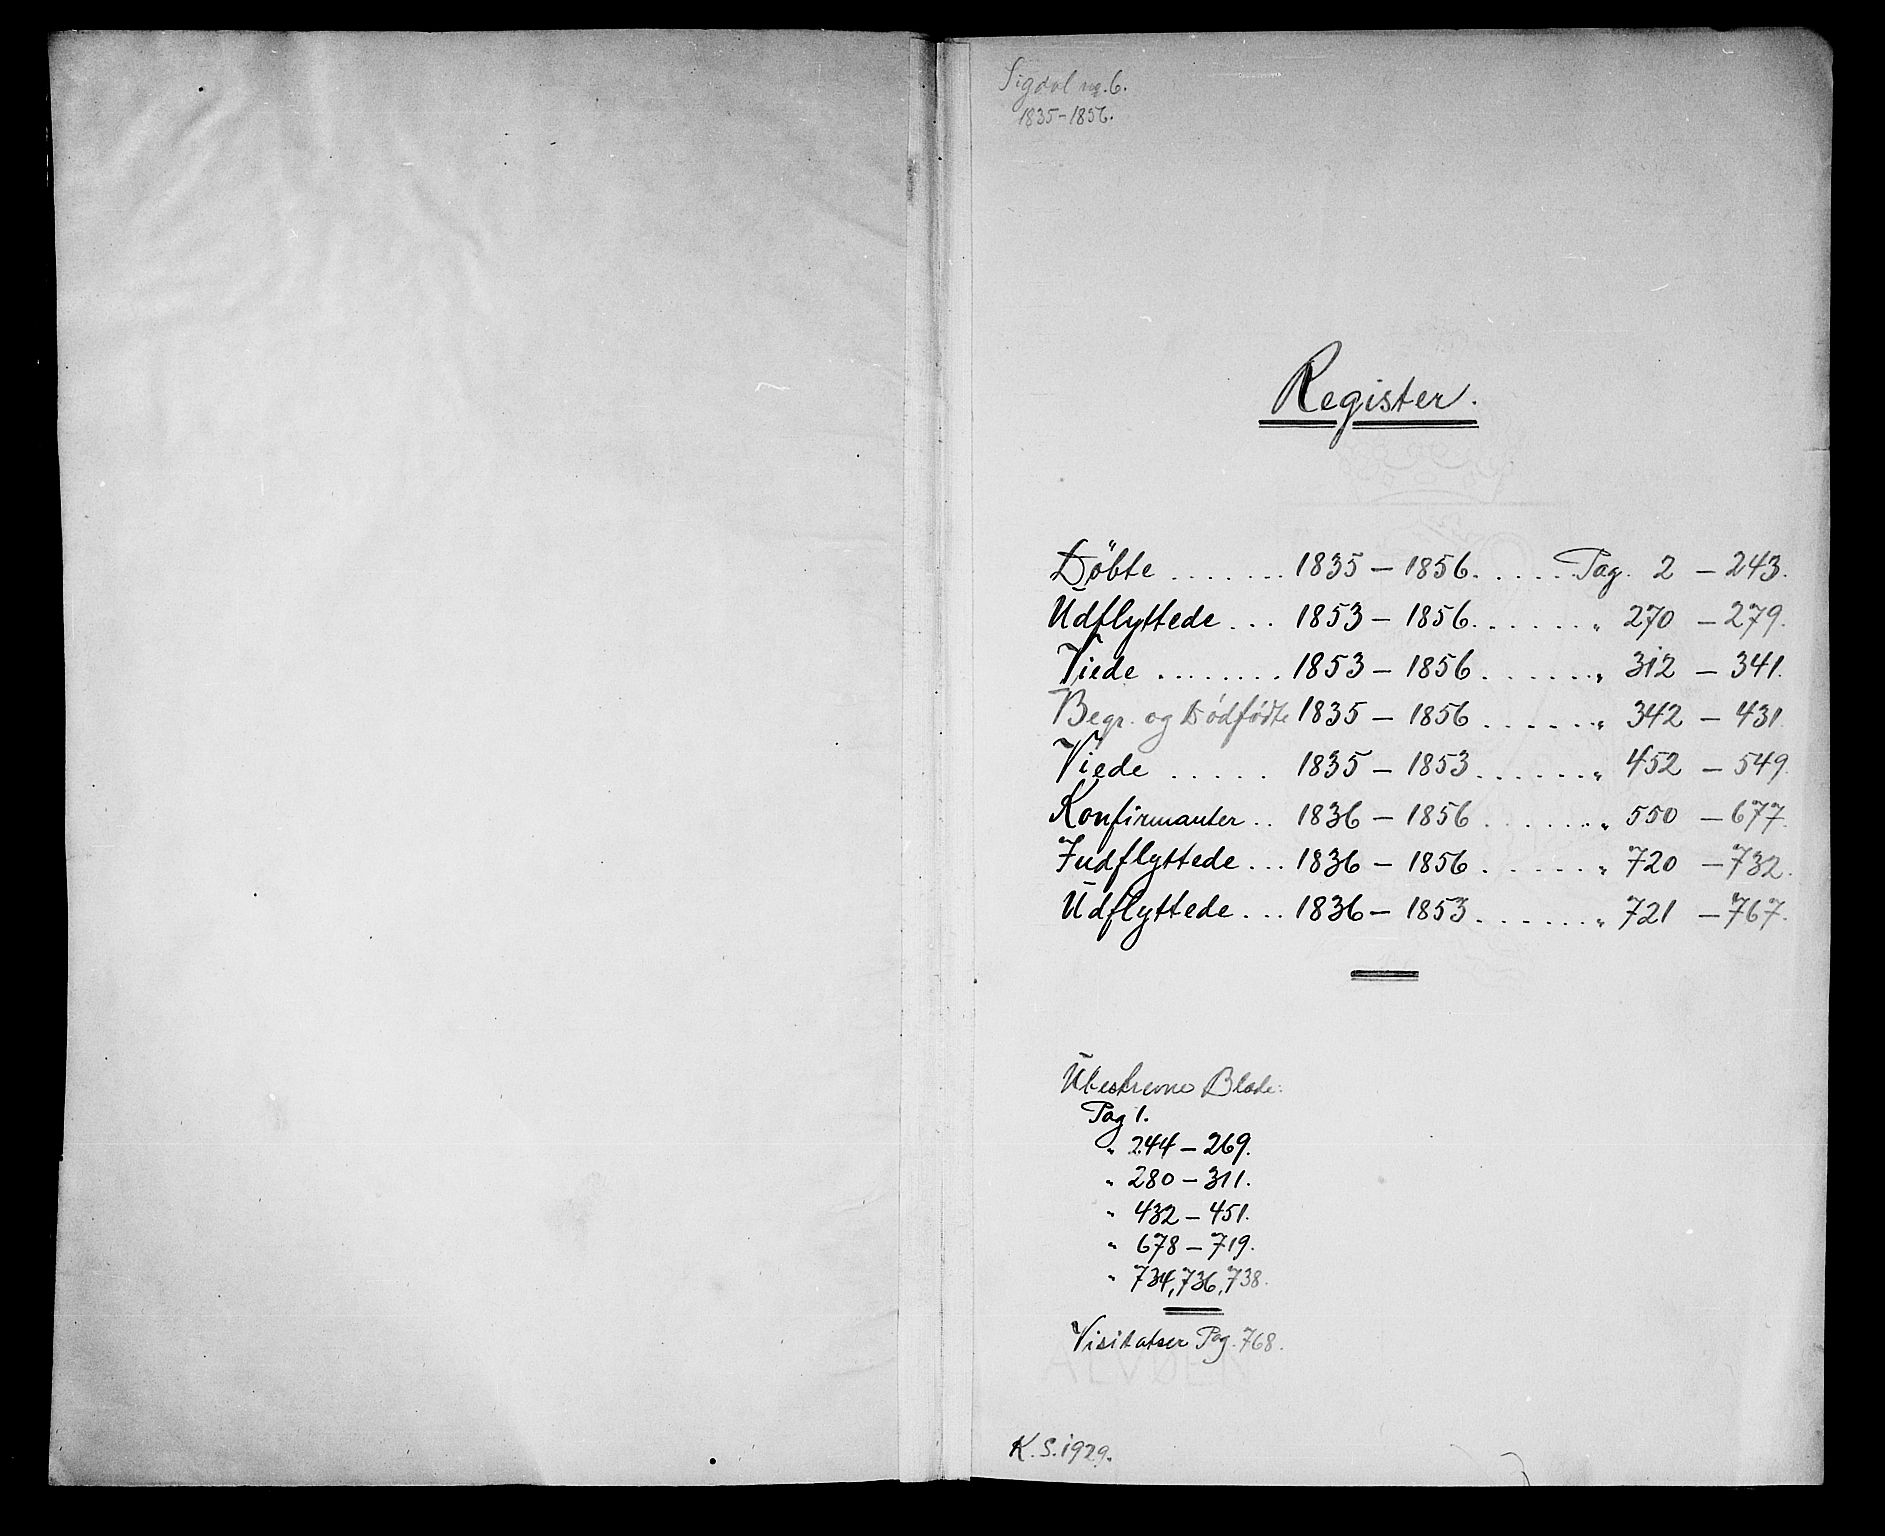 Sigdal nr. 6.
1835-1856.
Register.
Döbte ....... 1835 - 1856. ..... Pag. 2 - 243.
Udflyttede ... 1853 - 1856. ..... " 270 - 279.
Viede ........ 1853 - 1856 ...... " 312 - 341.
Begr. og Dødfødte 1835 - 1856 ...... " 342 - 431.
Viede ..... 1835 - 1853 ...... " 452 - 549.
Konfirmanter .. 1836 - 1856 ...... " 550 - 677.
Indflyttede ... 1836 - 1856 ...... " 720 - 732.
Udflyttede ... 1836 - 1853 ...... " 721 - 767.
Ubeskrevne Blade:
Pag 1.
" 244 - 269.
" 280 - 311.
" 432 - 451.
" 678 - 719.
" 734, 736, 738.
Visitatser Pag. 768.
ALVØEN
K. S. 1929.